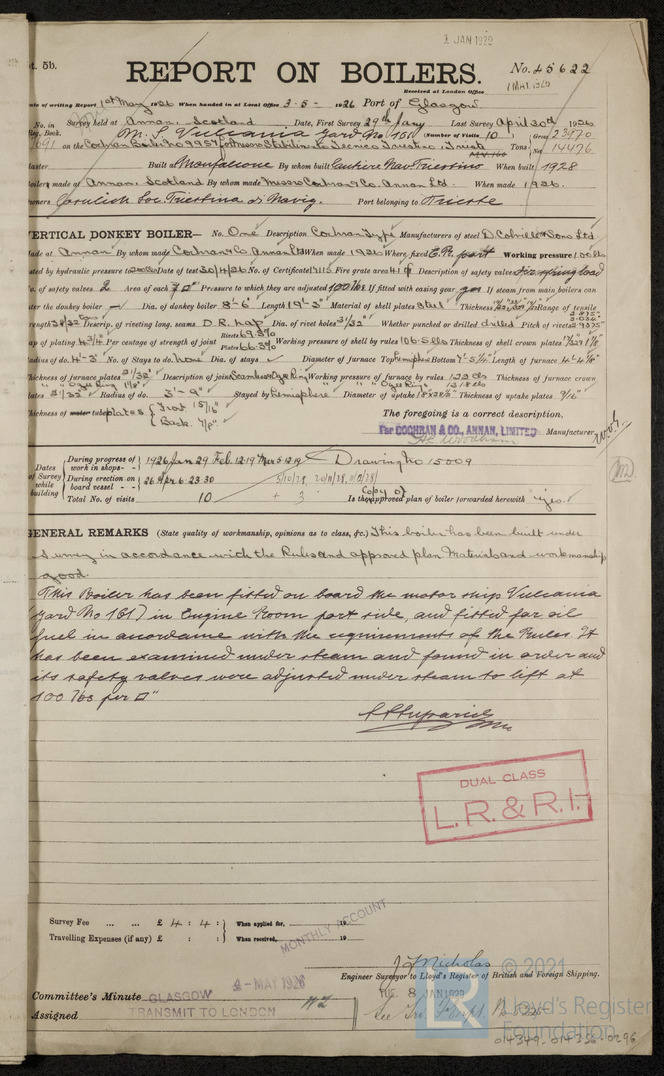 1 JAN 1929
pt. 5b.
REPORT ON BOILERS.
No. 45622
Received at London Office
1 MAY 1926
ate of writing Report 1st May 1926 When handed in at Local Office 3-5-1926 Port of Glasgow.
No. in Survey held at Annan, Scotland Date, First Survey 29th Jany Last Survey April 30th 1926
Reg. Book. M.S. Vulcania Yard No 161 (Number of Visits 10) Gross 23970
on the Cochran Boiler No 9957 for Messrs Stabilimento Tecnico Triestino, Trieste Tons Net 14476
Master Built at Monfalcone By whom built Cantiere Nav Triestino When built 1928
Boilers made at Annan, Scotland By whom made Messrs Cochran & Co. Annan Ltd. When made 1926.
Owners Cosulich Soc Triestina di Navig. Port belonging to Trieste
VERTICAL DONKEY BOILER— No. One Description Cochran Type Manufacturers of steel D. Colville & Sons Ltd
Made at Annan By whom made Cochran & Co Annan Ltd When made 1926 Where fixed E.R. port Working pressure 100 lbs
sted by hydraulic pressure to 200 lbs Date of test 30/4/26 No. of Certificate Fire grate area Description of safety valves spring load
No. of safety valves 2 Area of each Pressure to which they are adjusted 100 lbs If fitted with easing gear yes If steam from main boilers can
ter the donkey boiler — Dia. of donkey boiler 8'-6" Length 19'-3" Material of shell plates Steel Thickness Range of tensile
rength 28/32 tons Descrip. of riveting long. seams D.R. Lap Dia. of rivet holes 31/32" Whether punched or drilled drilled Pitch of rivets
ap of plating 4 3/4" Per centage of strength of joint Rivets 69.3% Plates 66.3% Working pressure of shell by rules 106.5 lbs Thickness of shell crown plates
Radius of do. 4'-3" No. of Stays to do. None Dia. of stays Diameter of furnace Top Hemisphere Bottom Length of furnace
Thickness of furnace plates 21/32" Description of joint Seamless Working pressure of furnace by rules 123 lbs Thickness of furnace crown
" " Ogee Ring " " Ogee Ring
ates 21/32" Radius of do. 3'-9" Stayed by hemisphere Diameter of uptake Thickness of uptake plates 9/16"
Thickness of water tube plates { Front 15/16"
{ Back. 7/8"
The foregoing is a correct description,
For COCHRAN & CO., ANNAN, LIMITED Manufacturer.
Dates of Survey while building
During progress of work in shops- - 1926 Jan 29 Feb. 12.19 Mar 5.12.19 Drawing No 15009
During erection on board vessel - - 26. Apr 6.23.30
Total No. of visits 10 + 3 Is the Copy of approved plan of boiler forwarded herewith Yes.
GENERAL REMARKS (State quality of workmanship, opinions as to class, &c.) This boiler has been built under
survey in accordance with the Rules and approved plan Materials and workmanship
good.
This Boiler has been fitted on board the motor ship Vulcania
(Yard No 161) in Engine Room port side, and fitted for oil
fuel in accordance with the requirements of the Rules. It
has been examined under steam and found in order and
its safety valves were adjusted under steam to lift at
100 lbs per □"
DUAL CLASS
L.R. & R.I.
Survey Fee ... ... £ 4 : 4 : } When applied for, 19
Travelling Expenses (if any) £ : : } When received, 19
MONTHLY ACCOUNT
J. Nicholas
Engineer Surveyor to Lloyd's Register of British and Foreign Shipping.
4-MAY 1926
Committee's Minute GLASGOW
TUE. 8 JAN 1929
Assigned TRANSMIT TO LONDON
© 2021
Lloyd's Register
Foundation
014349-014356-0296